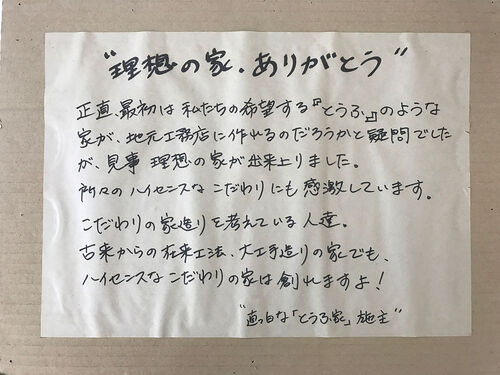 “理想の家.ありがとう”
正直、最初は私たちの希望する『とうふ』のような
家が、地元工務店に作れるのだろうかと疑問でした
が、見事 理想の家が出来上りました。
所々のハイセンスなこだわりにも感激しています。
こだわりの家造りを考えている人達。
古来からの在来工法、大工手造りの家でも、
ハイセンスなこだわりの家は創れますよ！
“真っ白な「とうふ家」施主”